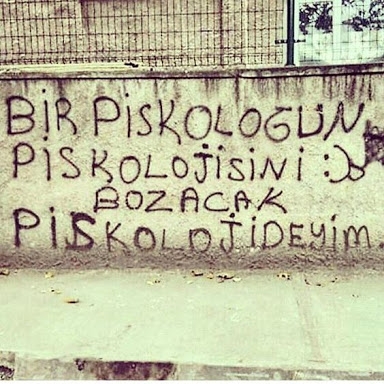 BİR PİSKOLOGÜN
PİSKOLOJİSİNİ :)
BOZACAK
PİSKOLOJİDEYİM